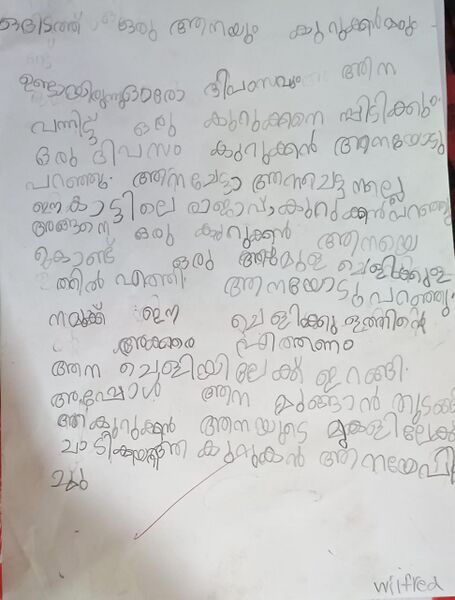 ഒരിടത്ത് ഒരു ആനയും കുറുക്കനും
ഉണ്ടായിരുന്നു ഓരോ ദീപസവും ആന
വന്നിട്ട് ഒരു കുറുക്കനെ പിടിക്കും.
ഒരു ദിപസം കുറുക്കൻ ആനയോടു
പറഞ്ഞു. ആനചേട്ടാ ആനചേട്ടനല്ലേ
ഈ കാട്ടിലെ രാജാവ് കുറുക്കൻ പറഞ്ഞു
അങ്ങനെ ഒരു കുറുക്കൻ ആനയെ
കൊണ്ട് ഒരു ചെളിക്കുള
ത്തിൽ എത്തി. ആനയോടു പറഞ്ഞു.
നമുക്ക് ഈ ചെളിക്കുളത്തിന്റെ
അക്കരെ എത്തണം
ആന ചെളിയിലേക്ക് ഇറങ്ങി.
അപ്പോൾ ആന മുങ്ങാൻ തുടങ്ങി
ആ കുറുക്കൻ ആനയുടെ മുകളിലേക്കു
ചാടികയറി കുറുക്കൻ ആനയേ
wilfred